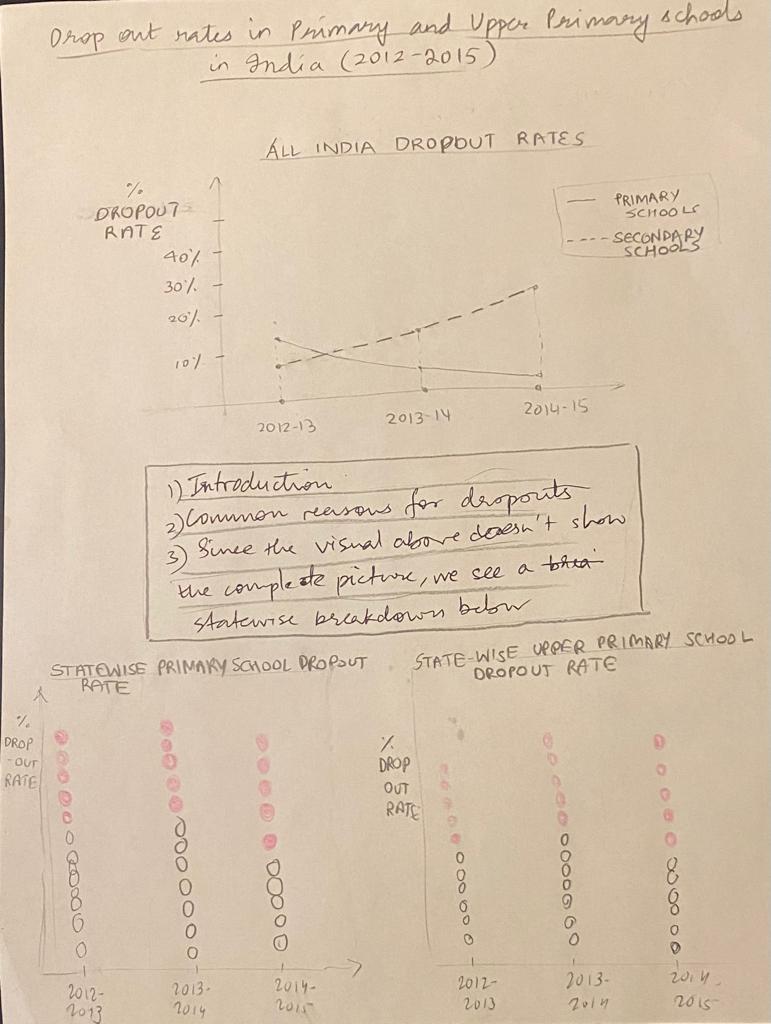 Drop out rates in Primary and Upper Primary schools
in India (2012-2015)
ALL INDIA DROPOUT RATES
%
DROPOUT
RATE
40%
30%
20%
10%
PRIMARY
SCHOOLS
SECONDARY
SCHOOLS
2012-13
2013-14
2014-15
1) Introduction
2) Common reasons for dropouts
3) Since the visual above doesn't show
the complete picture, we see a brea
statewise breakdown below
STATEWISE PRIMARY SCHOOL DROPOUT
RATE
%
DROP
-OUT
RATE
2012-
2013
2013-
2014
2014-
2015
STATE-WISE UPPER PRIMARY SCHOOL
DROPOUT RATE
%
DROP
OUT
RATE
2012-
2013
2013-
2014
2014-
2015